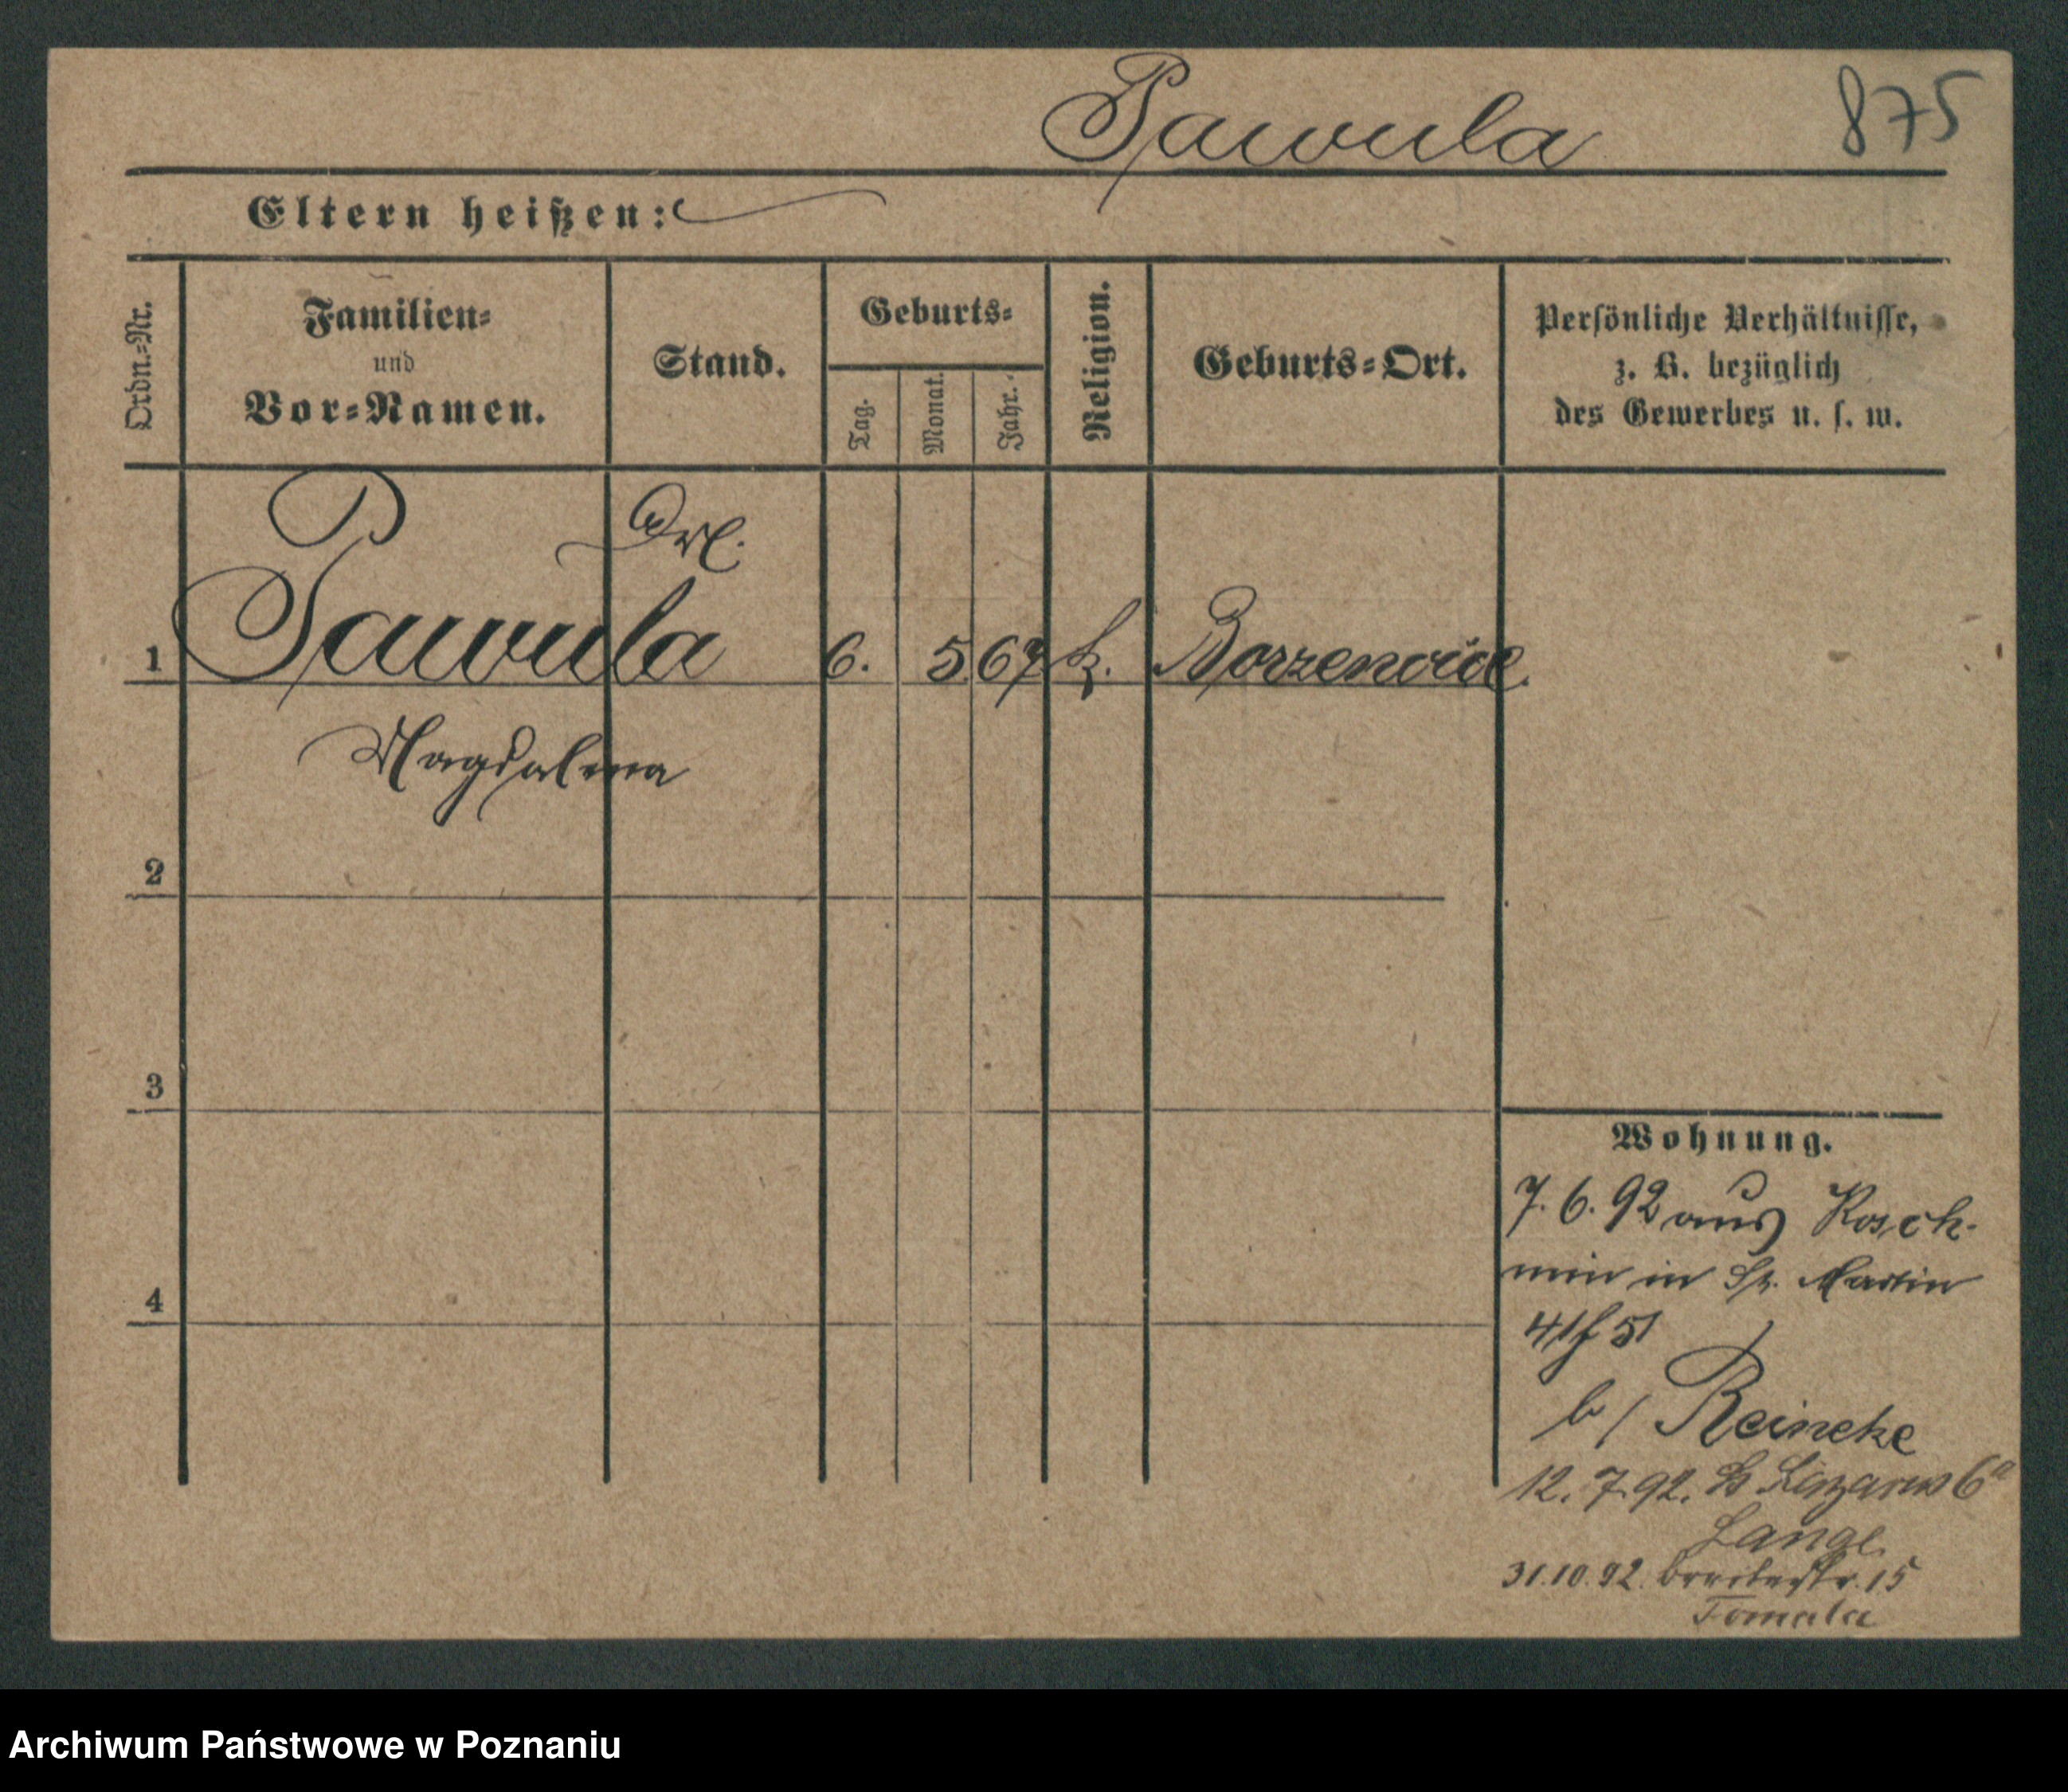 Pawula 875
Eltern heißen:
Ordn.-Nr.
Familien-
und
Vor-Namen.
Stand.
Geburts-
Tag.
Monat.
Jahr.
Religion.
Geburts-Ort.
Persönliche Verhältnisse,
z. B. bezüglich
des Gewerbes u. s. w.
1 Pawula 6. 5. 67 k. Borzencice.
Magdalena
2
3
4
Wohnung.
7. 6. 92 aus Kosch-
min in St. Martin
41
b/ Reineke
12. 7. 92. St Lazarus 6a
Lange
31.10.92. Breitestr. 15
Tomala
Archiwum Państwowe w Poznaniu